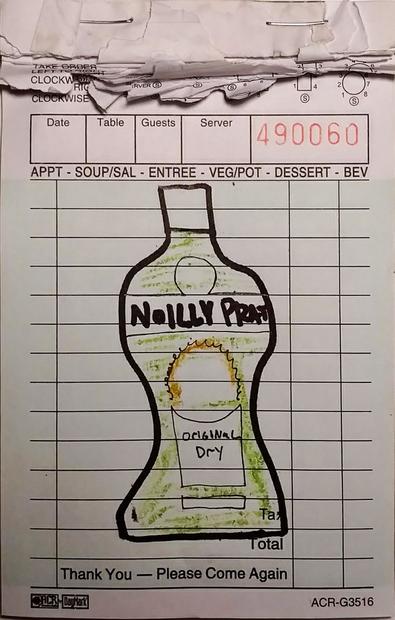 TAKE ORDER
LEFT TO RIGHT
CLOCKW
RIG
CLOCKWISE
RVER S
S
S
Date Table Guests Server 490060
APPT - SOUP/SAL - ENTREE - VEG/POT - DESSERT - BEV
NOILLY PRAT
ORIGINAL
DRY
Tax
Total
Thank You — Please Come Again
ACR DayMark ACR-G3516